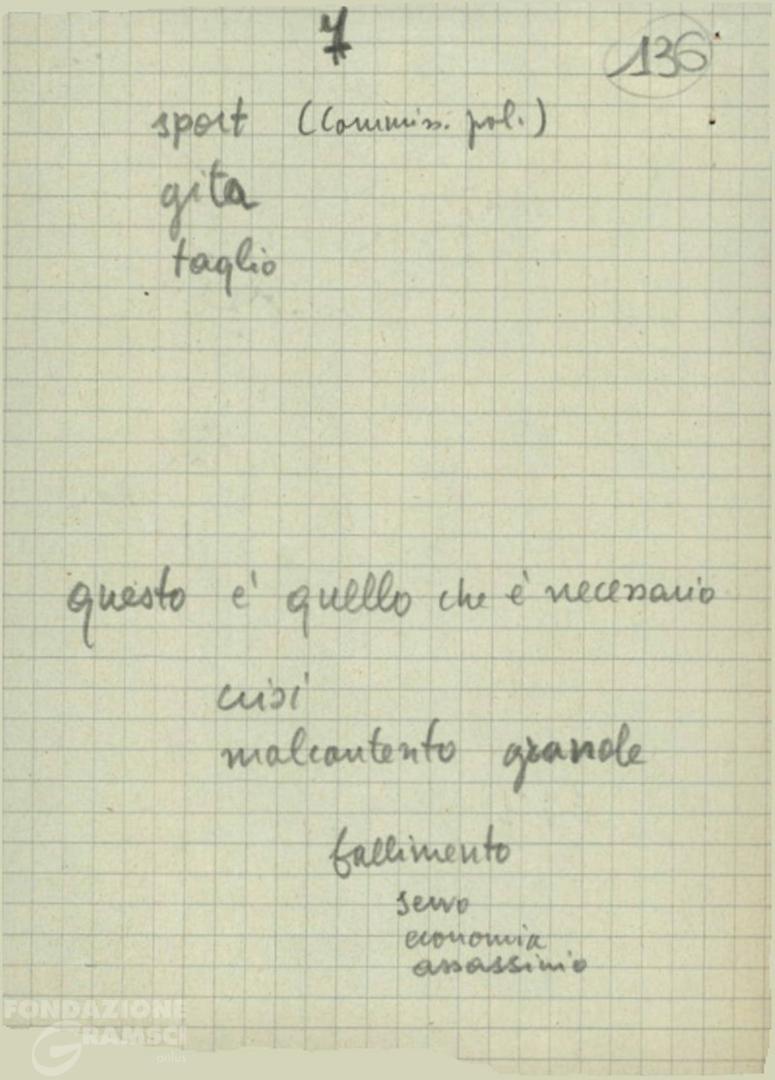 7
136
sport (Commiss. pol.)
gita
taglio
questo è quello che è necessario
crisi
malcontento grande
fallimento
servo
economia
assassinio
FONDAZIONE
GRAMSCI
onlus